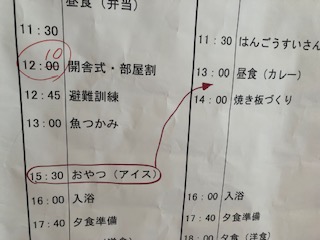 昼食（弁当）
11:30
10
12:00 開舎式・部屋割
12:45 避難訓練
13:00 魚つかみ
15:30 おやつ（アイス）
16:00 入浴
17:40 夕食準備
11:30 はんごうすいさん
13:00 昼食（カレー）
14:00 焼き板づくり
16:00 入浴
17:40 夕食準備
18:00 夕食（洋食）